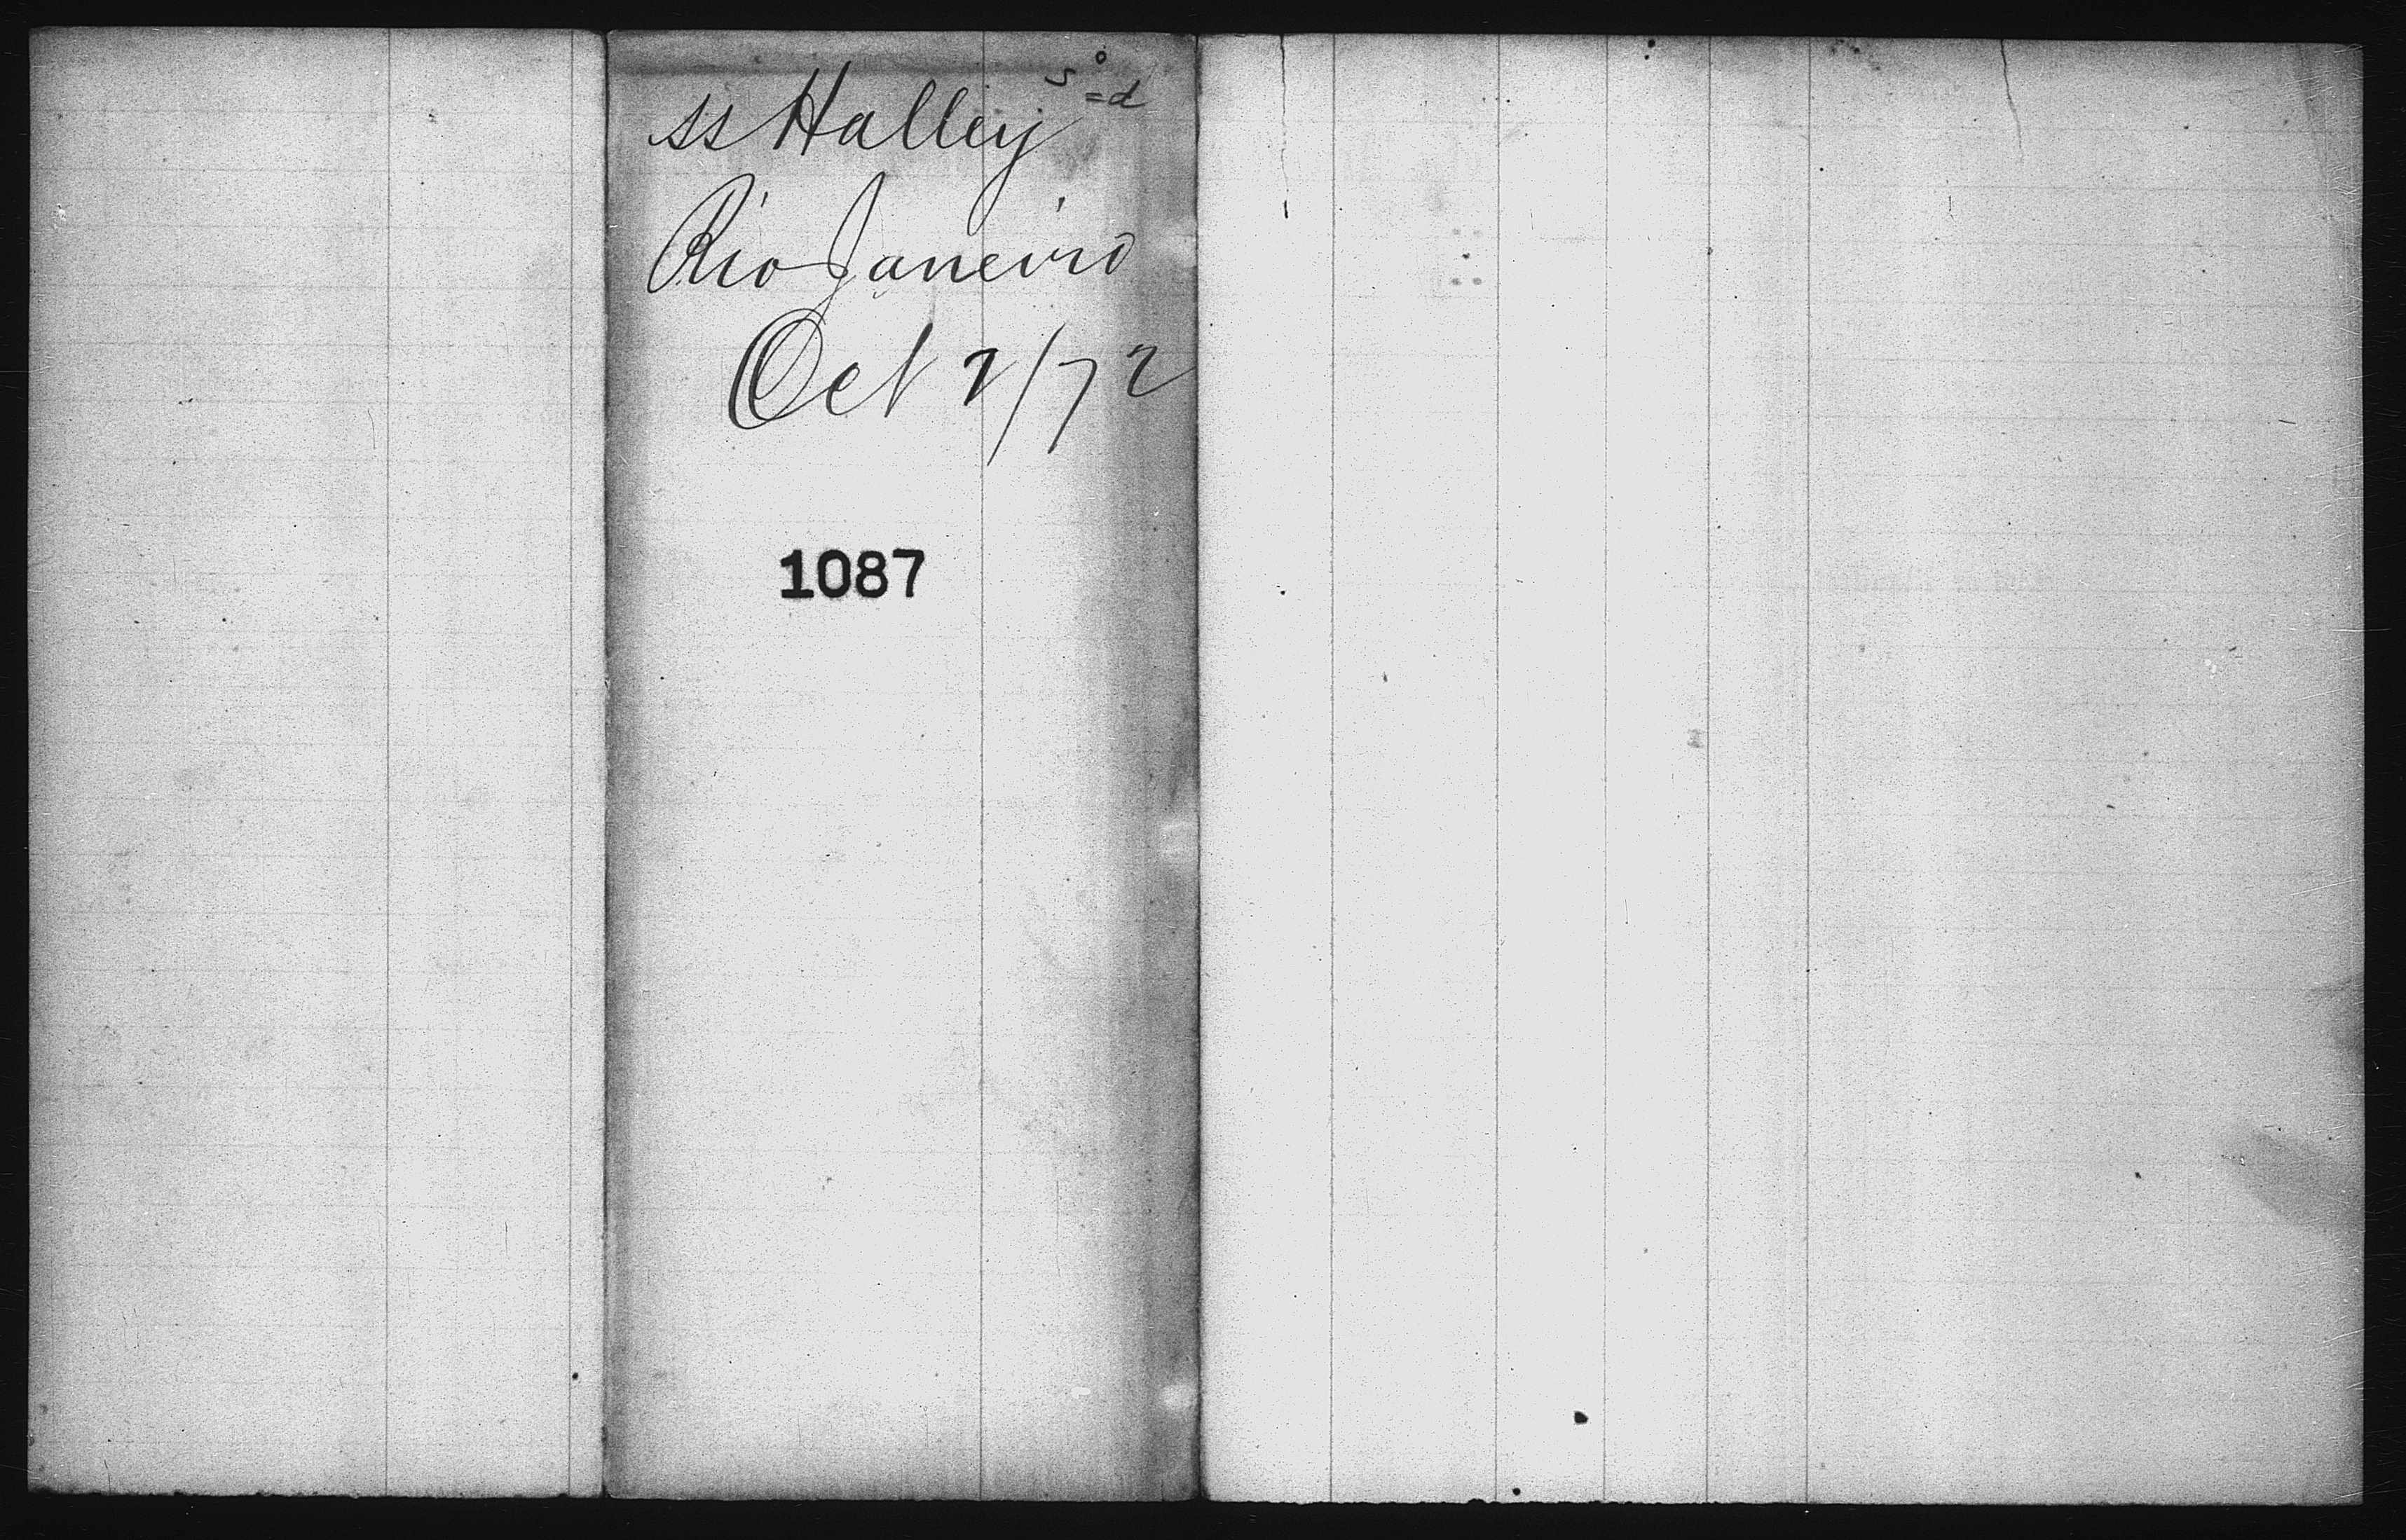 ss Halley
Rio Janeiro
Oct 7/72
1087